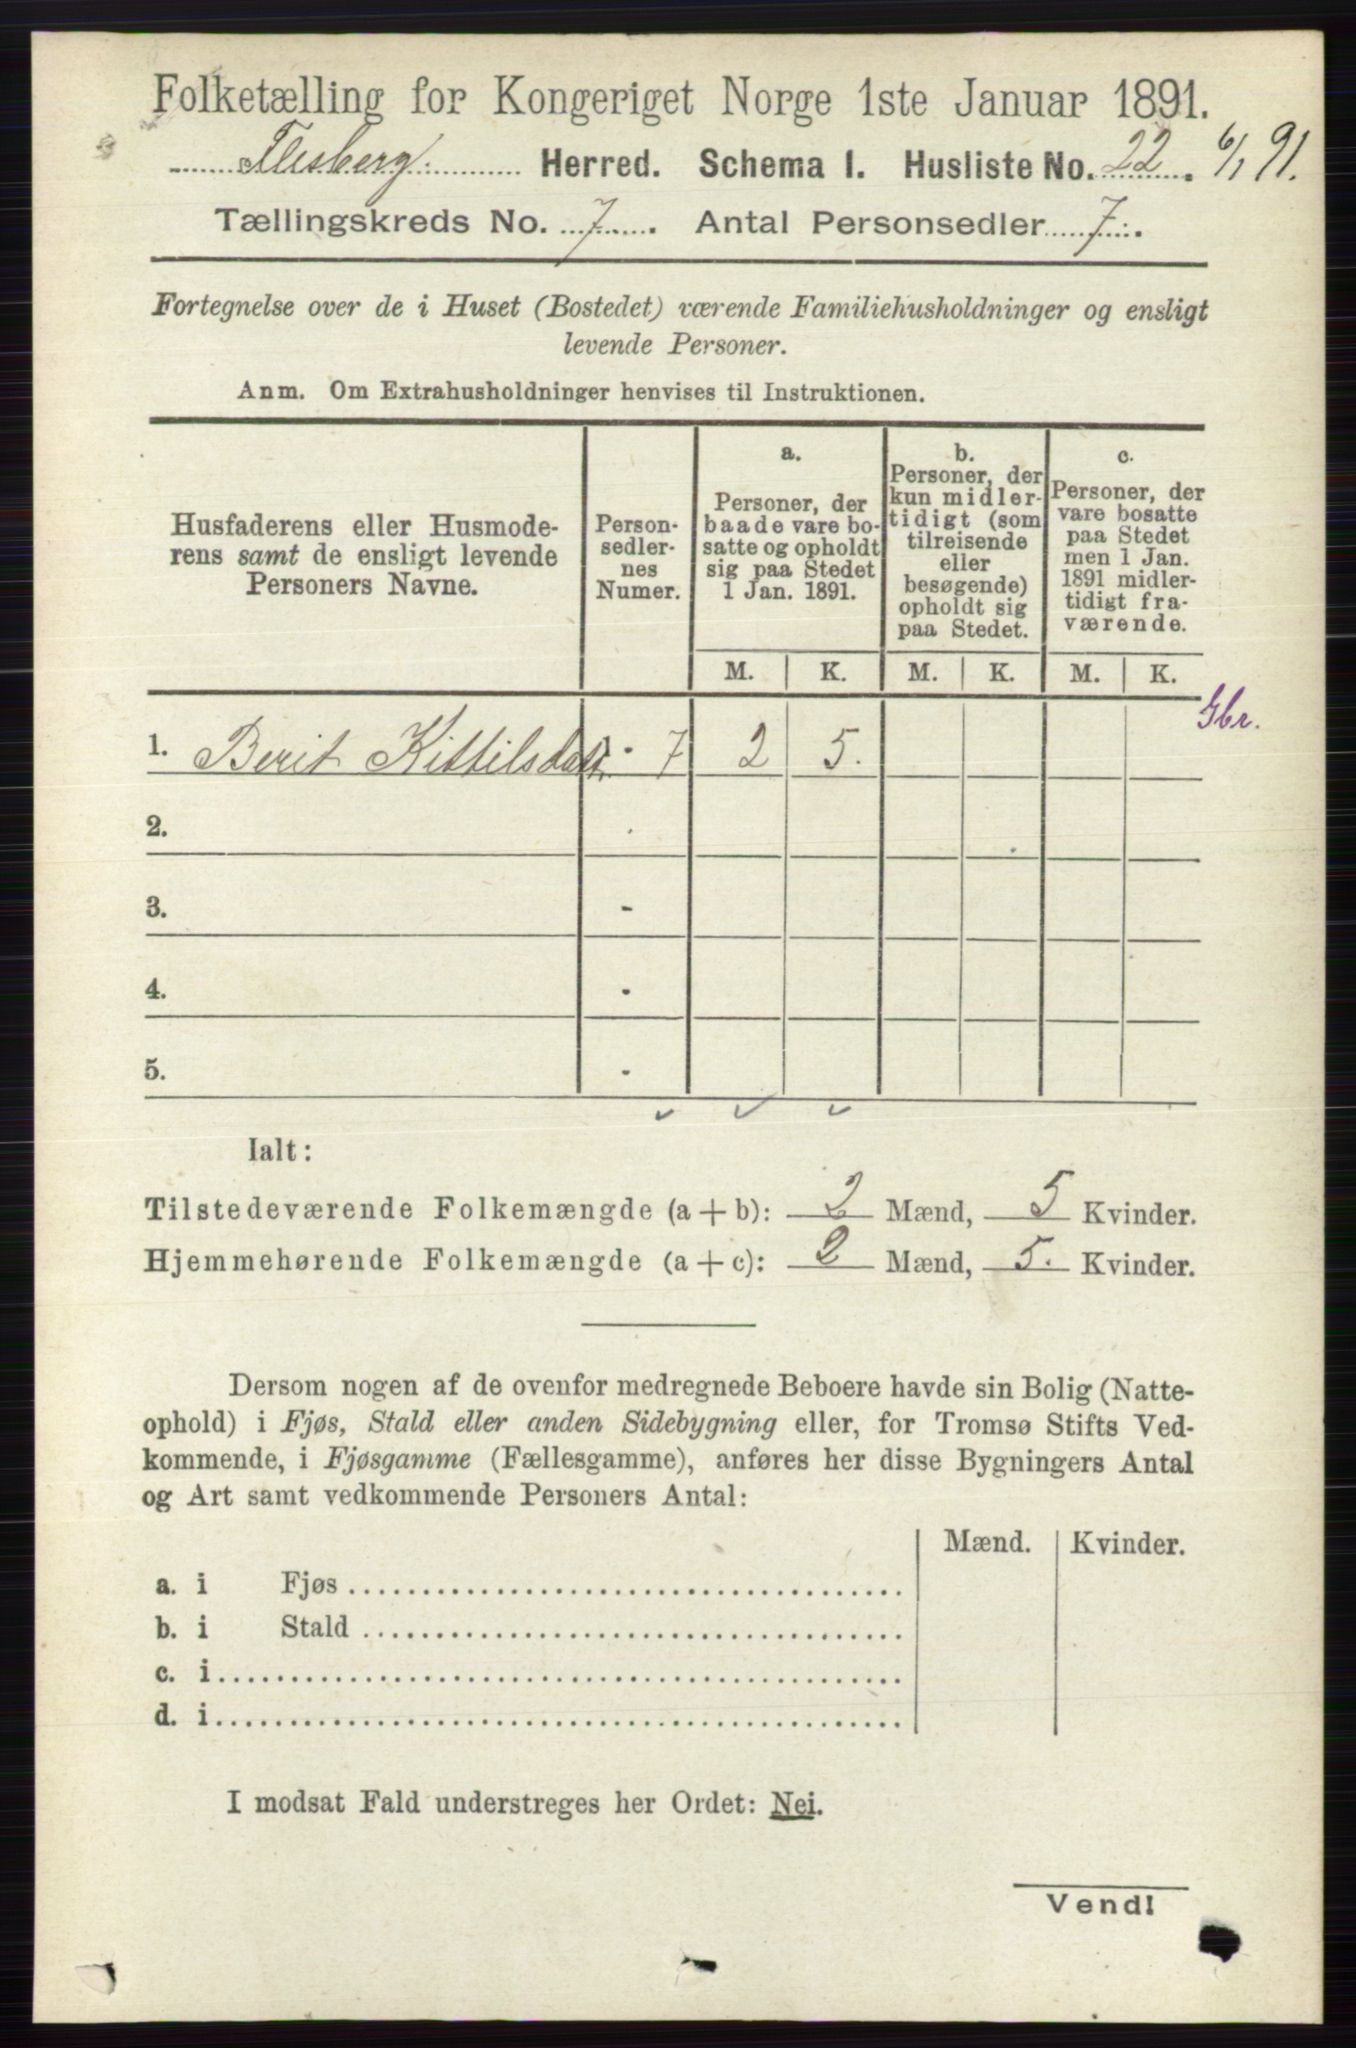 Folketælling for Kongeriget Norge 1ste Januar 1891.
Flesberg Herred. Schema I. Husliste No. 22. 6/1 91.
Tællingskreds No. 7. Antal Personsedler 7.
Fortegnelse over de i Huset (Bostedet) værende Familiehusholdninger og ensligt
levende Personer.
Anm. Om Extrahusholdninger henvises til Instruktionen.
Husfaderens eller Husmode-
rens samt de ensligt levende
Personers Navne.
Person-
sedler-
nes
Numer.
a.
Personer, der
baade vare bo-
satte og opholdt
sig paa Stedet
1 Jan. 1891.
b.
Personer, der
kun midler-
tidigt (som
tilreisende
eller
besøgende)
opholdt sig
paa Stedet.
c.
Personer, der
vare bosatte
paa Stedet
men 1 Jan.
1891 midler-
tidigt fra-
værende.
M. K. M. K. M. K.
Gbr.
1. Berit Kittilsdatt. - 7 2 5.
2. -
3. -
4. -
5. -
Ialt:
Tilstedeværende Folkemængde (a + b): 2 Mænd, 5 Kvinder.
Hjemmehørende Folkemængde (a + c): 2 Mænd, 5. Kvinder.
Dersom nogen af de ovenfor medregnede Beboere havde sin Bolig (Natte-
ophold) i Fjøs, Stald eller anden Sidebygning eller, for Tromsø Stifts Ved-
kommende, i Fjøsgamme (Fællesgamme), anføres her disse Bygningers Antal
og Art samt vedkommende Personers Antal:
Mænd. Kvinder.
a. i Fjøs
b. i Stald
c. i
d. i
I modsat Fald understreges her Ordet: Nei.
Vend!